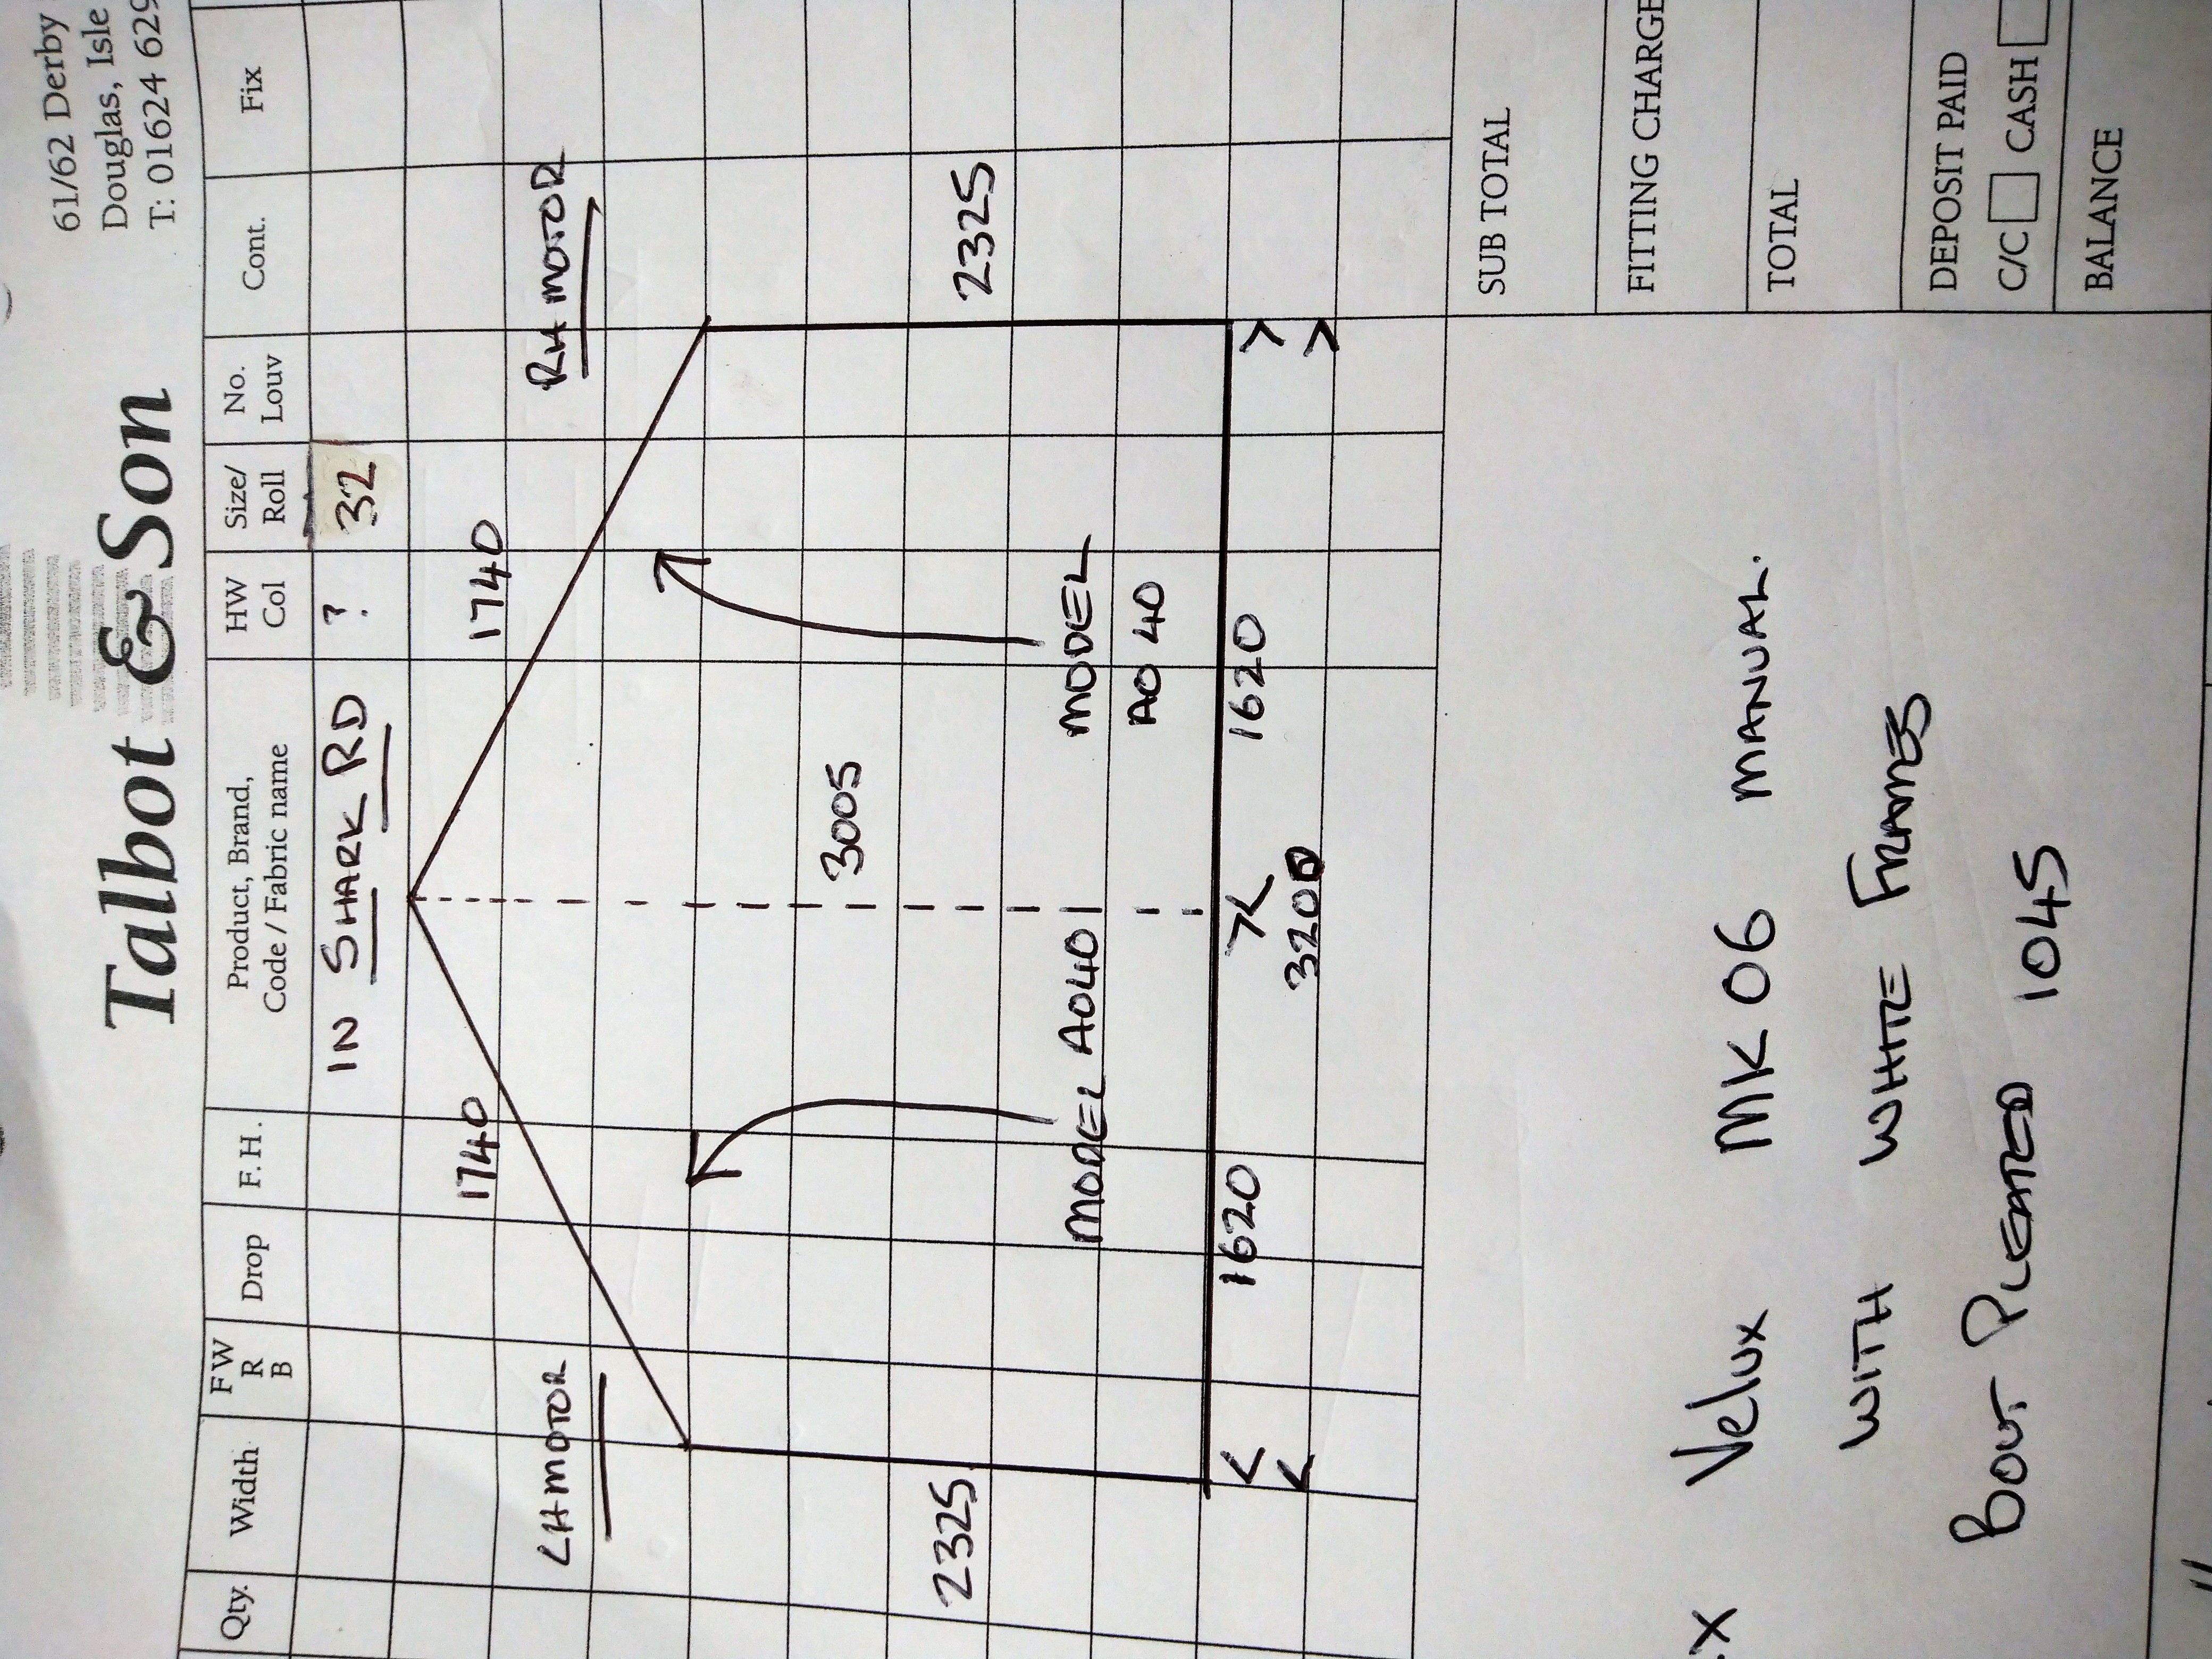 Talbot & Son
61/62 Derby
Douglas, Isle
T: 01624 629
Qty. Width F W R B Drop F. H. Product, Brand, Code / Fabric name HW Col Size/ Roll No. Louv Cont. Fix
IN SHARK RD ? 32
1740 1740
LH MOTOR RH MOTOR
3005
2325 2325
MODEL A040 MODEL
A040
1620 1620
3200
SUB TOTAL
FITTING CHARGE
X Velux MK06 MANUAL.
TOTAL
WITH WHITE FRAMES
DEPOSIT PAID
C/C CASH
BOUT PLEATED 1045
BALANCE